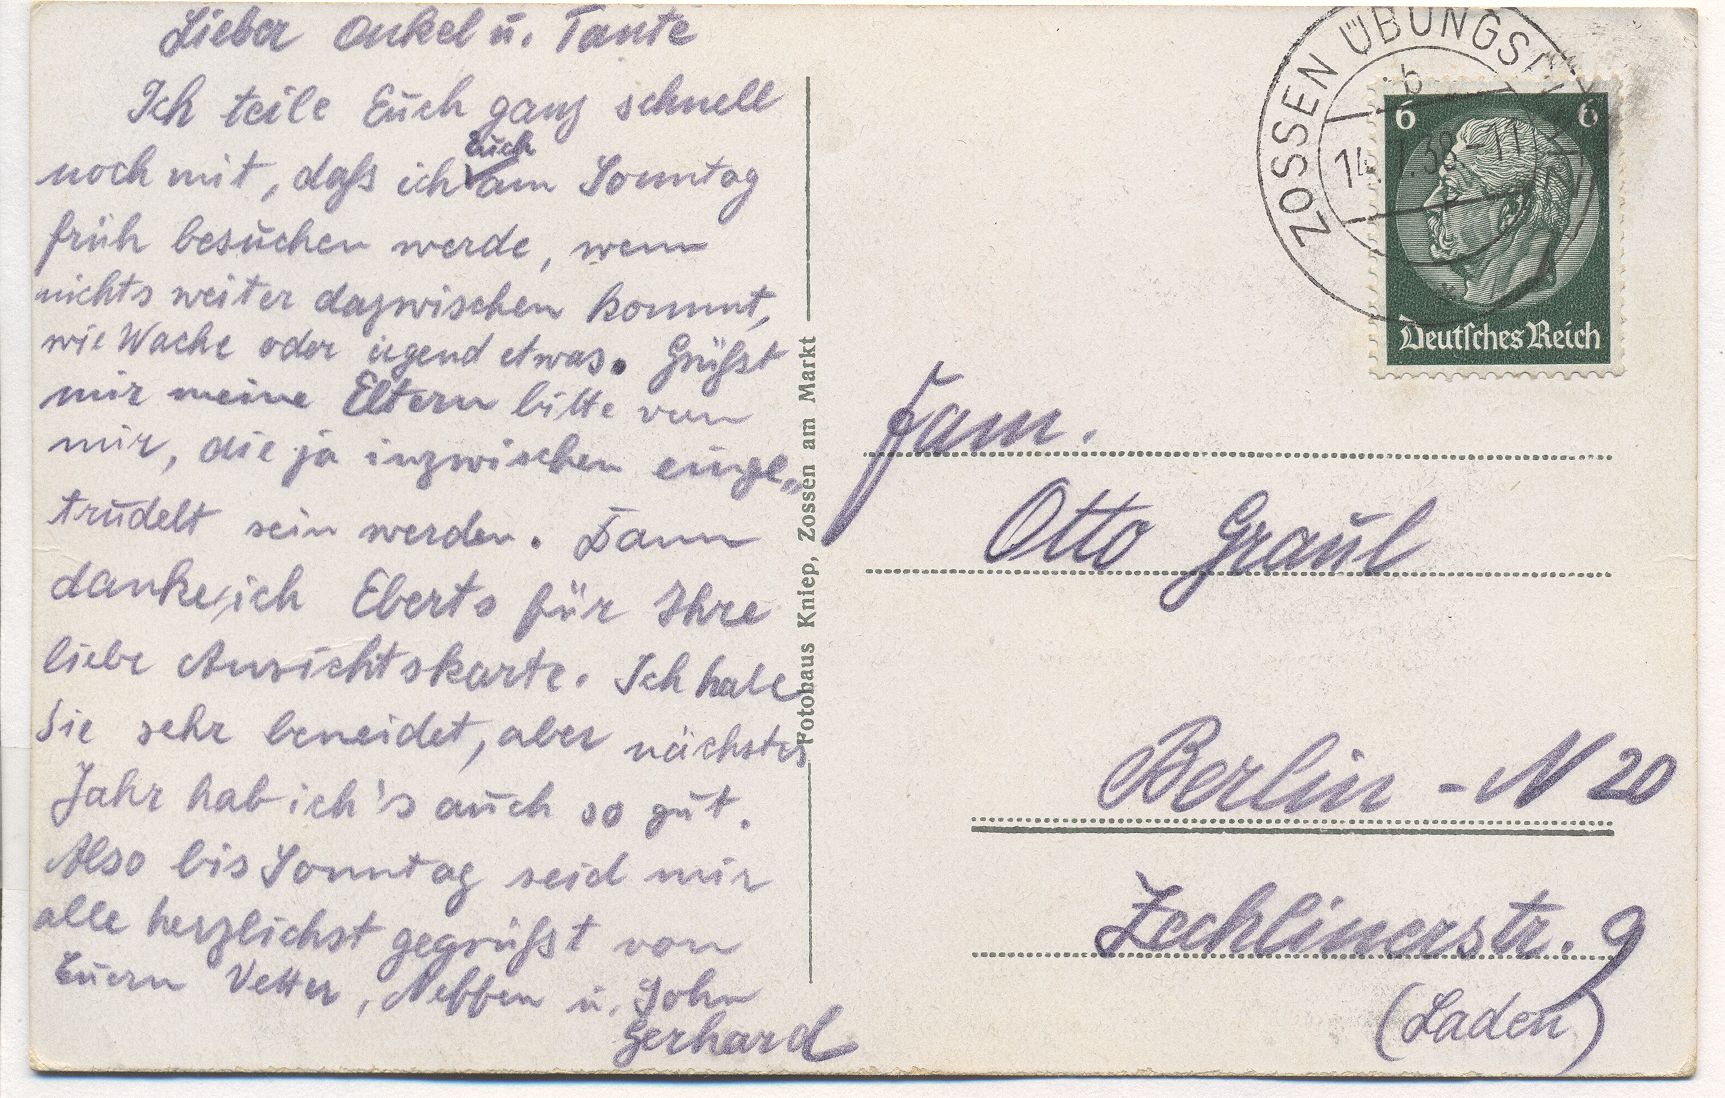 Lieber Onkel u. Tante
Ich teile Euch ganz schnell
noch mit, daß ich Euch am Sonntag
früh besuchen werde, wenn
nichts weiter dazwischen kommt,
wie Wache oder irgend etwas. Grüßt
mir meine Eltern bitte von
mir, die ja inzwischen einge„
trudelt sein werden. Dann
danke ich Eberts für Ihre
liebe Ansichtskarte. Ich habe
Sie sehr beneidet, aber nächstes
Jahr hab ich's auch so gut.
Also bis Sonntag seid mir
alle herzlichst gegrüßt von
Euern Vetter, Neffen u. Sohn
Gerhard
Fotohaus Kniep, Zossen am Markt
ZOSSEN ÜBUNGS
b
38-11
6 6
Deutsches Reich
Fam.
Otto Graul
Berlin - N 20
Zechlinerstr. 9
(Laden)